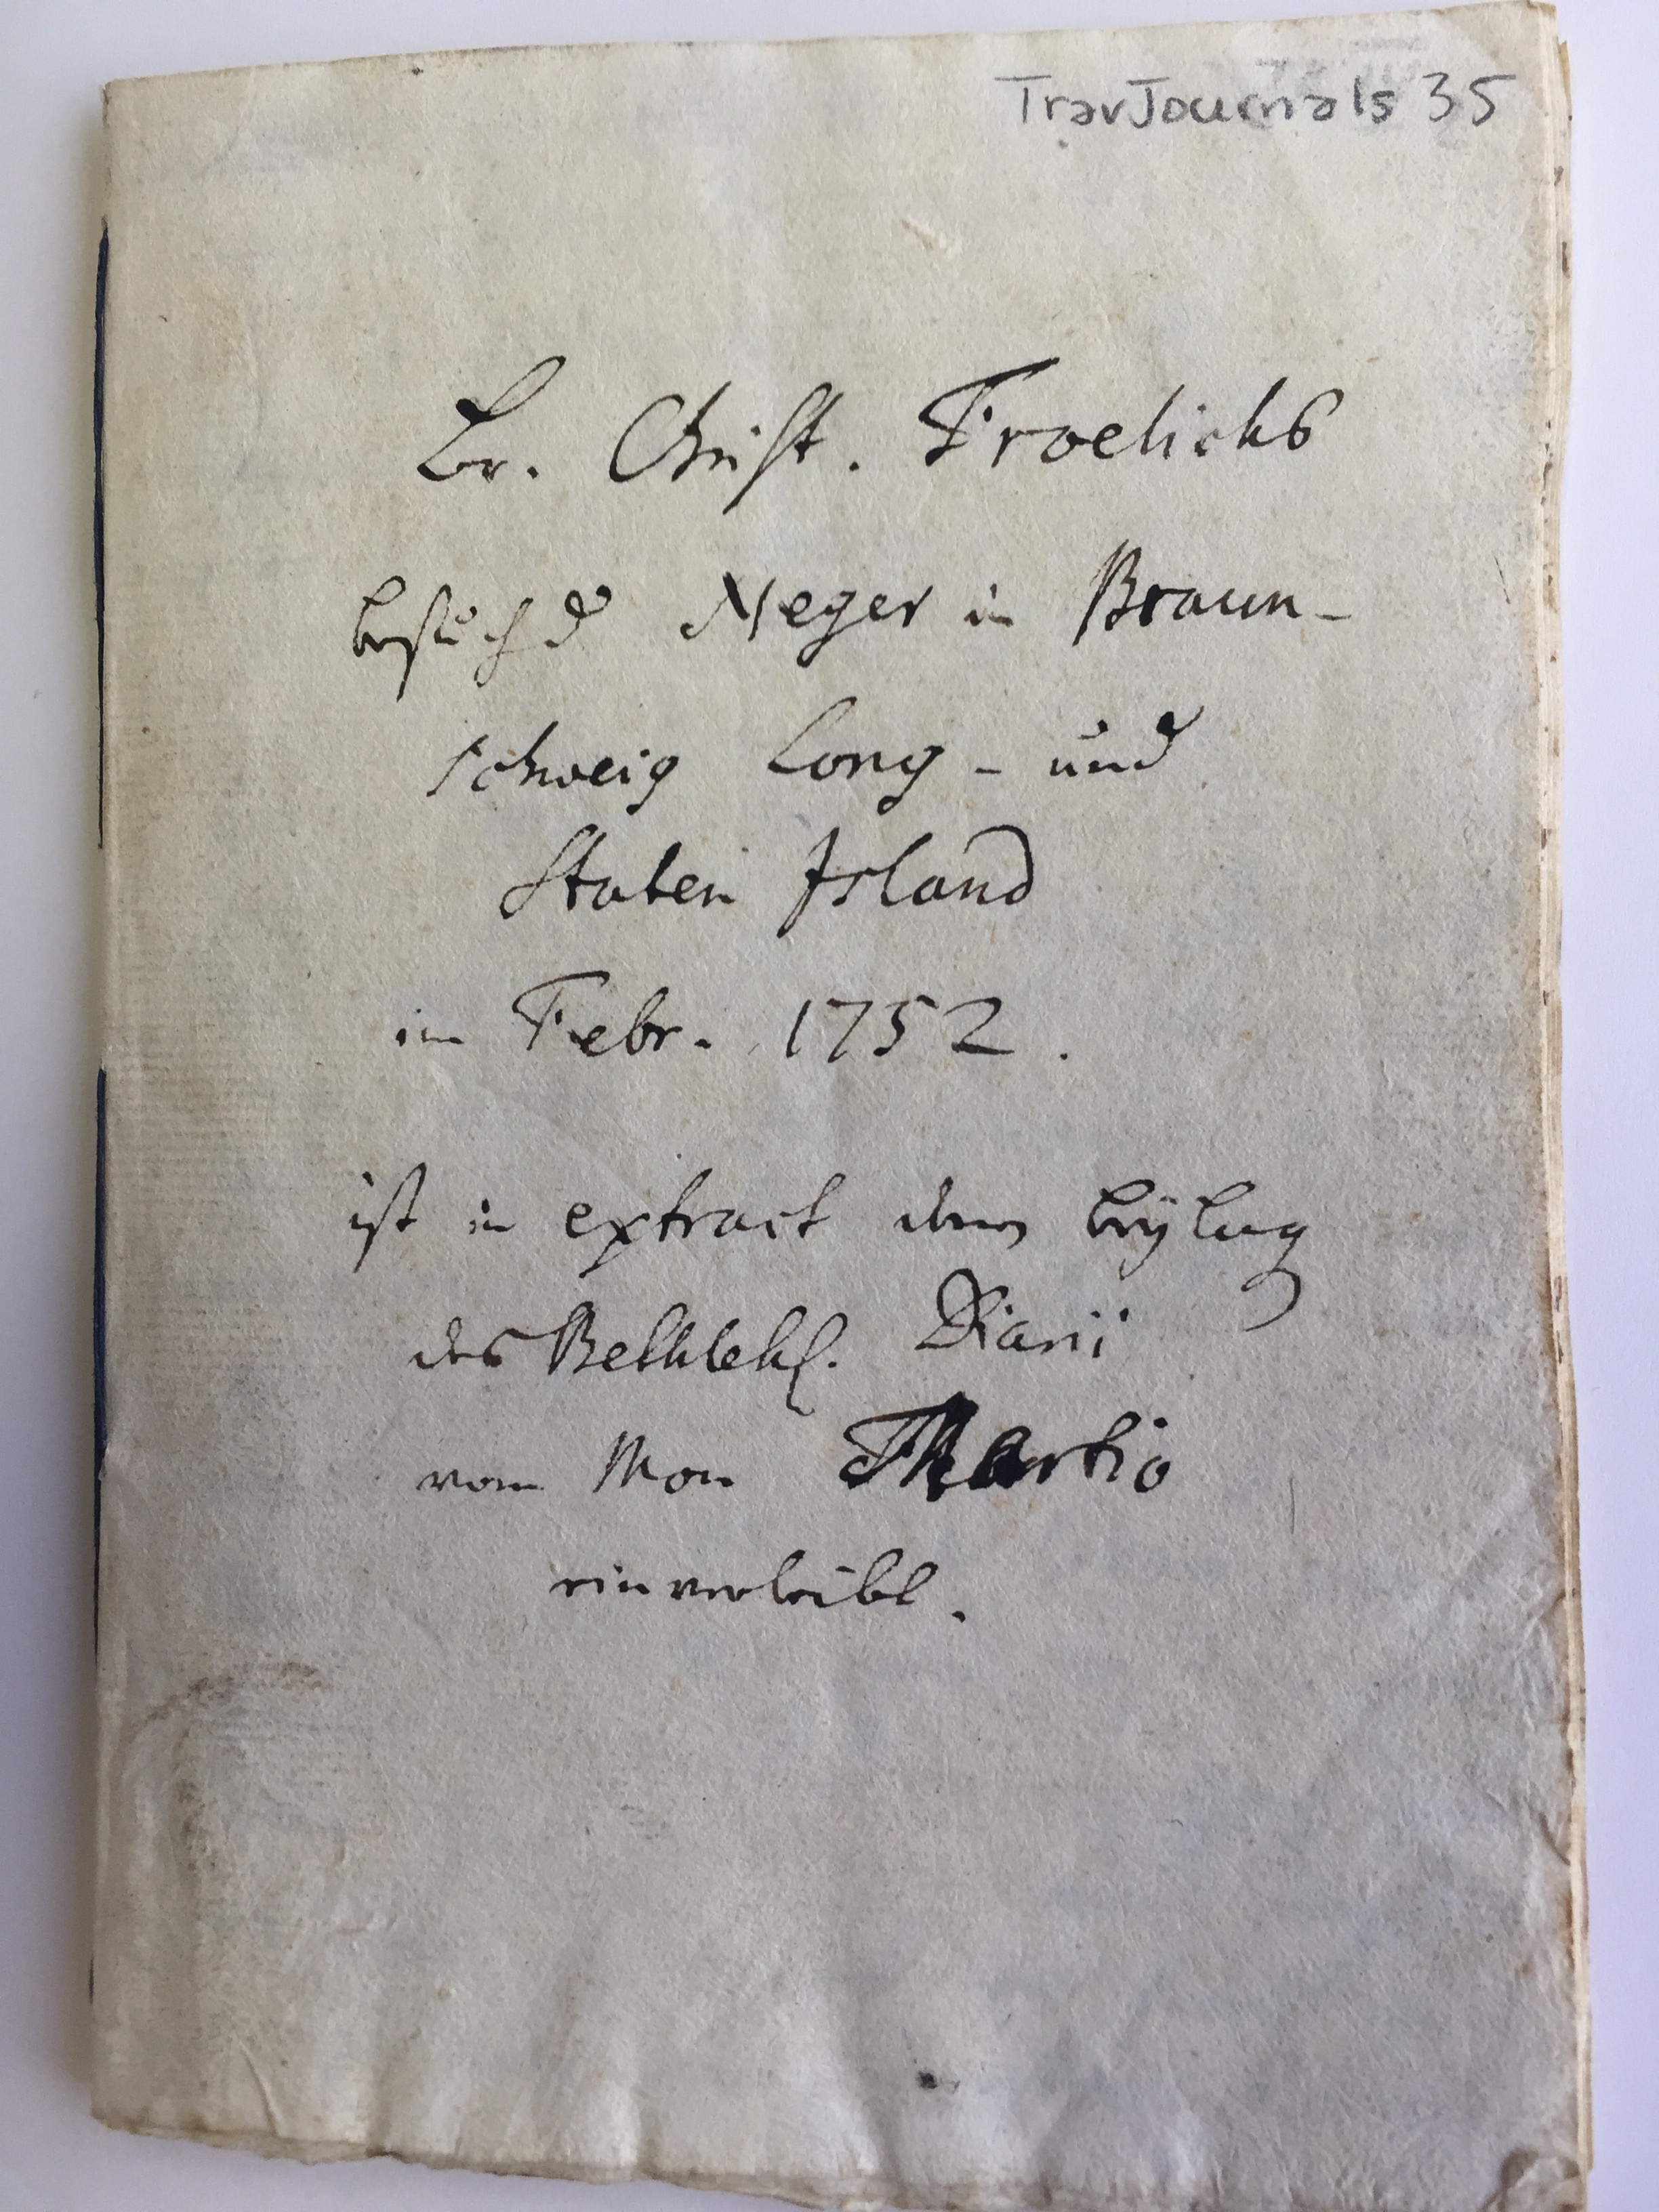 TravJournals 35
Br. Christ. Froelichs
besuch d Neger in Braun-
schweig Long- und
Staten Island
im Febr. 1752.
ist in extract dem beÿlag
des Bethleh. Diarii
vom Mon Martio
einverleibt.